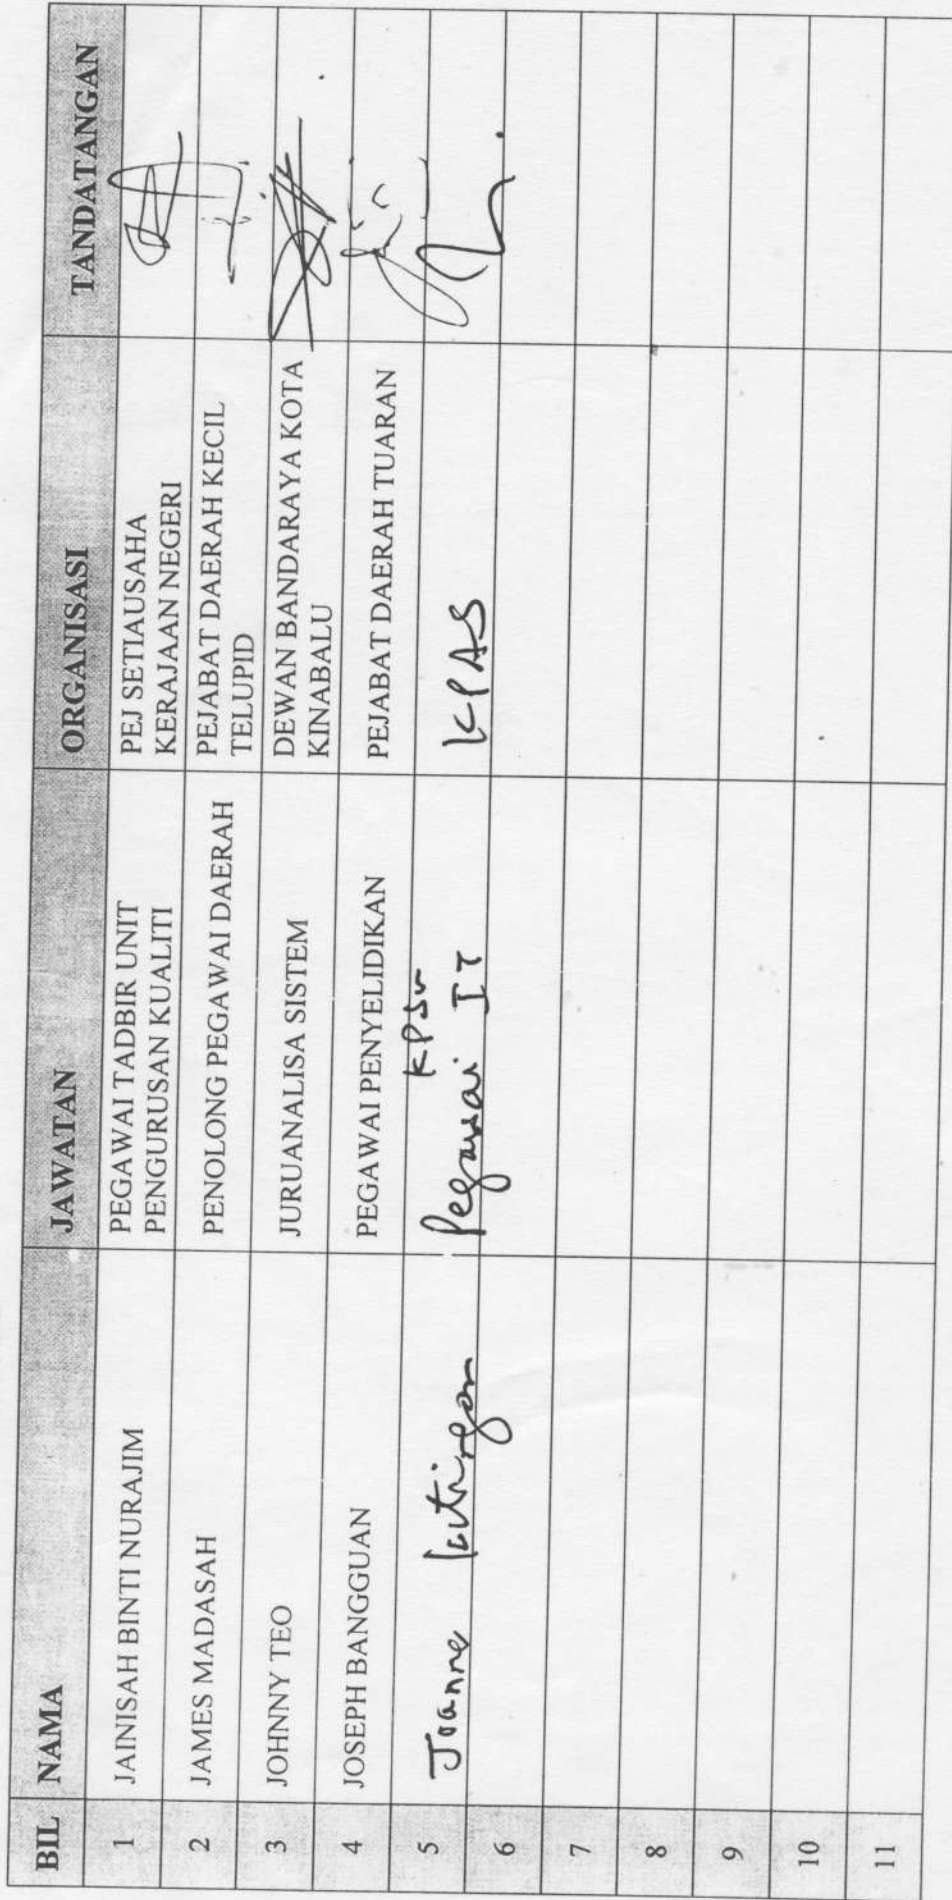 BIL NAMA JAWATAN ORGANISASI TANDATANGAN
1 JAINISAH BINTI NURAJIM PEGAWAI TADBIR UNIT PEJ SETIAUSAHA
PENGURUSAN KUALITI KERAJAAN NEGERI
2 JAMES MADASAH PENOLONG PEGAWAI DAERAH PEJABAT DAERAH KECIL
TELUPID
3 JOHNNY TEO JURUANALISA SISTEM DEWAN BANDARAYA KOTA
KINABALU
4 JOSEPH BANGGUAN PEGAWAI PENYELIDIKAN PEJABAT DAERAH TUARAN
5 Joanne Pegawai IT KPAS
6
7
8
9
10
11